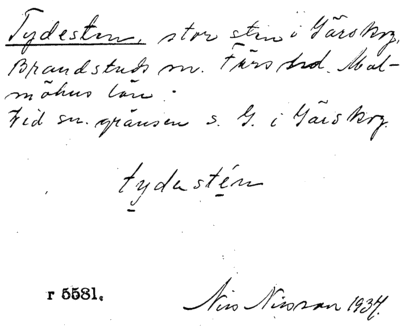 Tydesten, stor sten i Gårskog,
Brandstads sn. Färs hd. Mal-
möhus län.
Vid sn. gränsen s. G. i Gårskog.
tydastén
r 5581.
Nils Nilsson 1937.